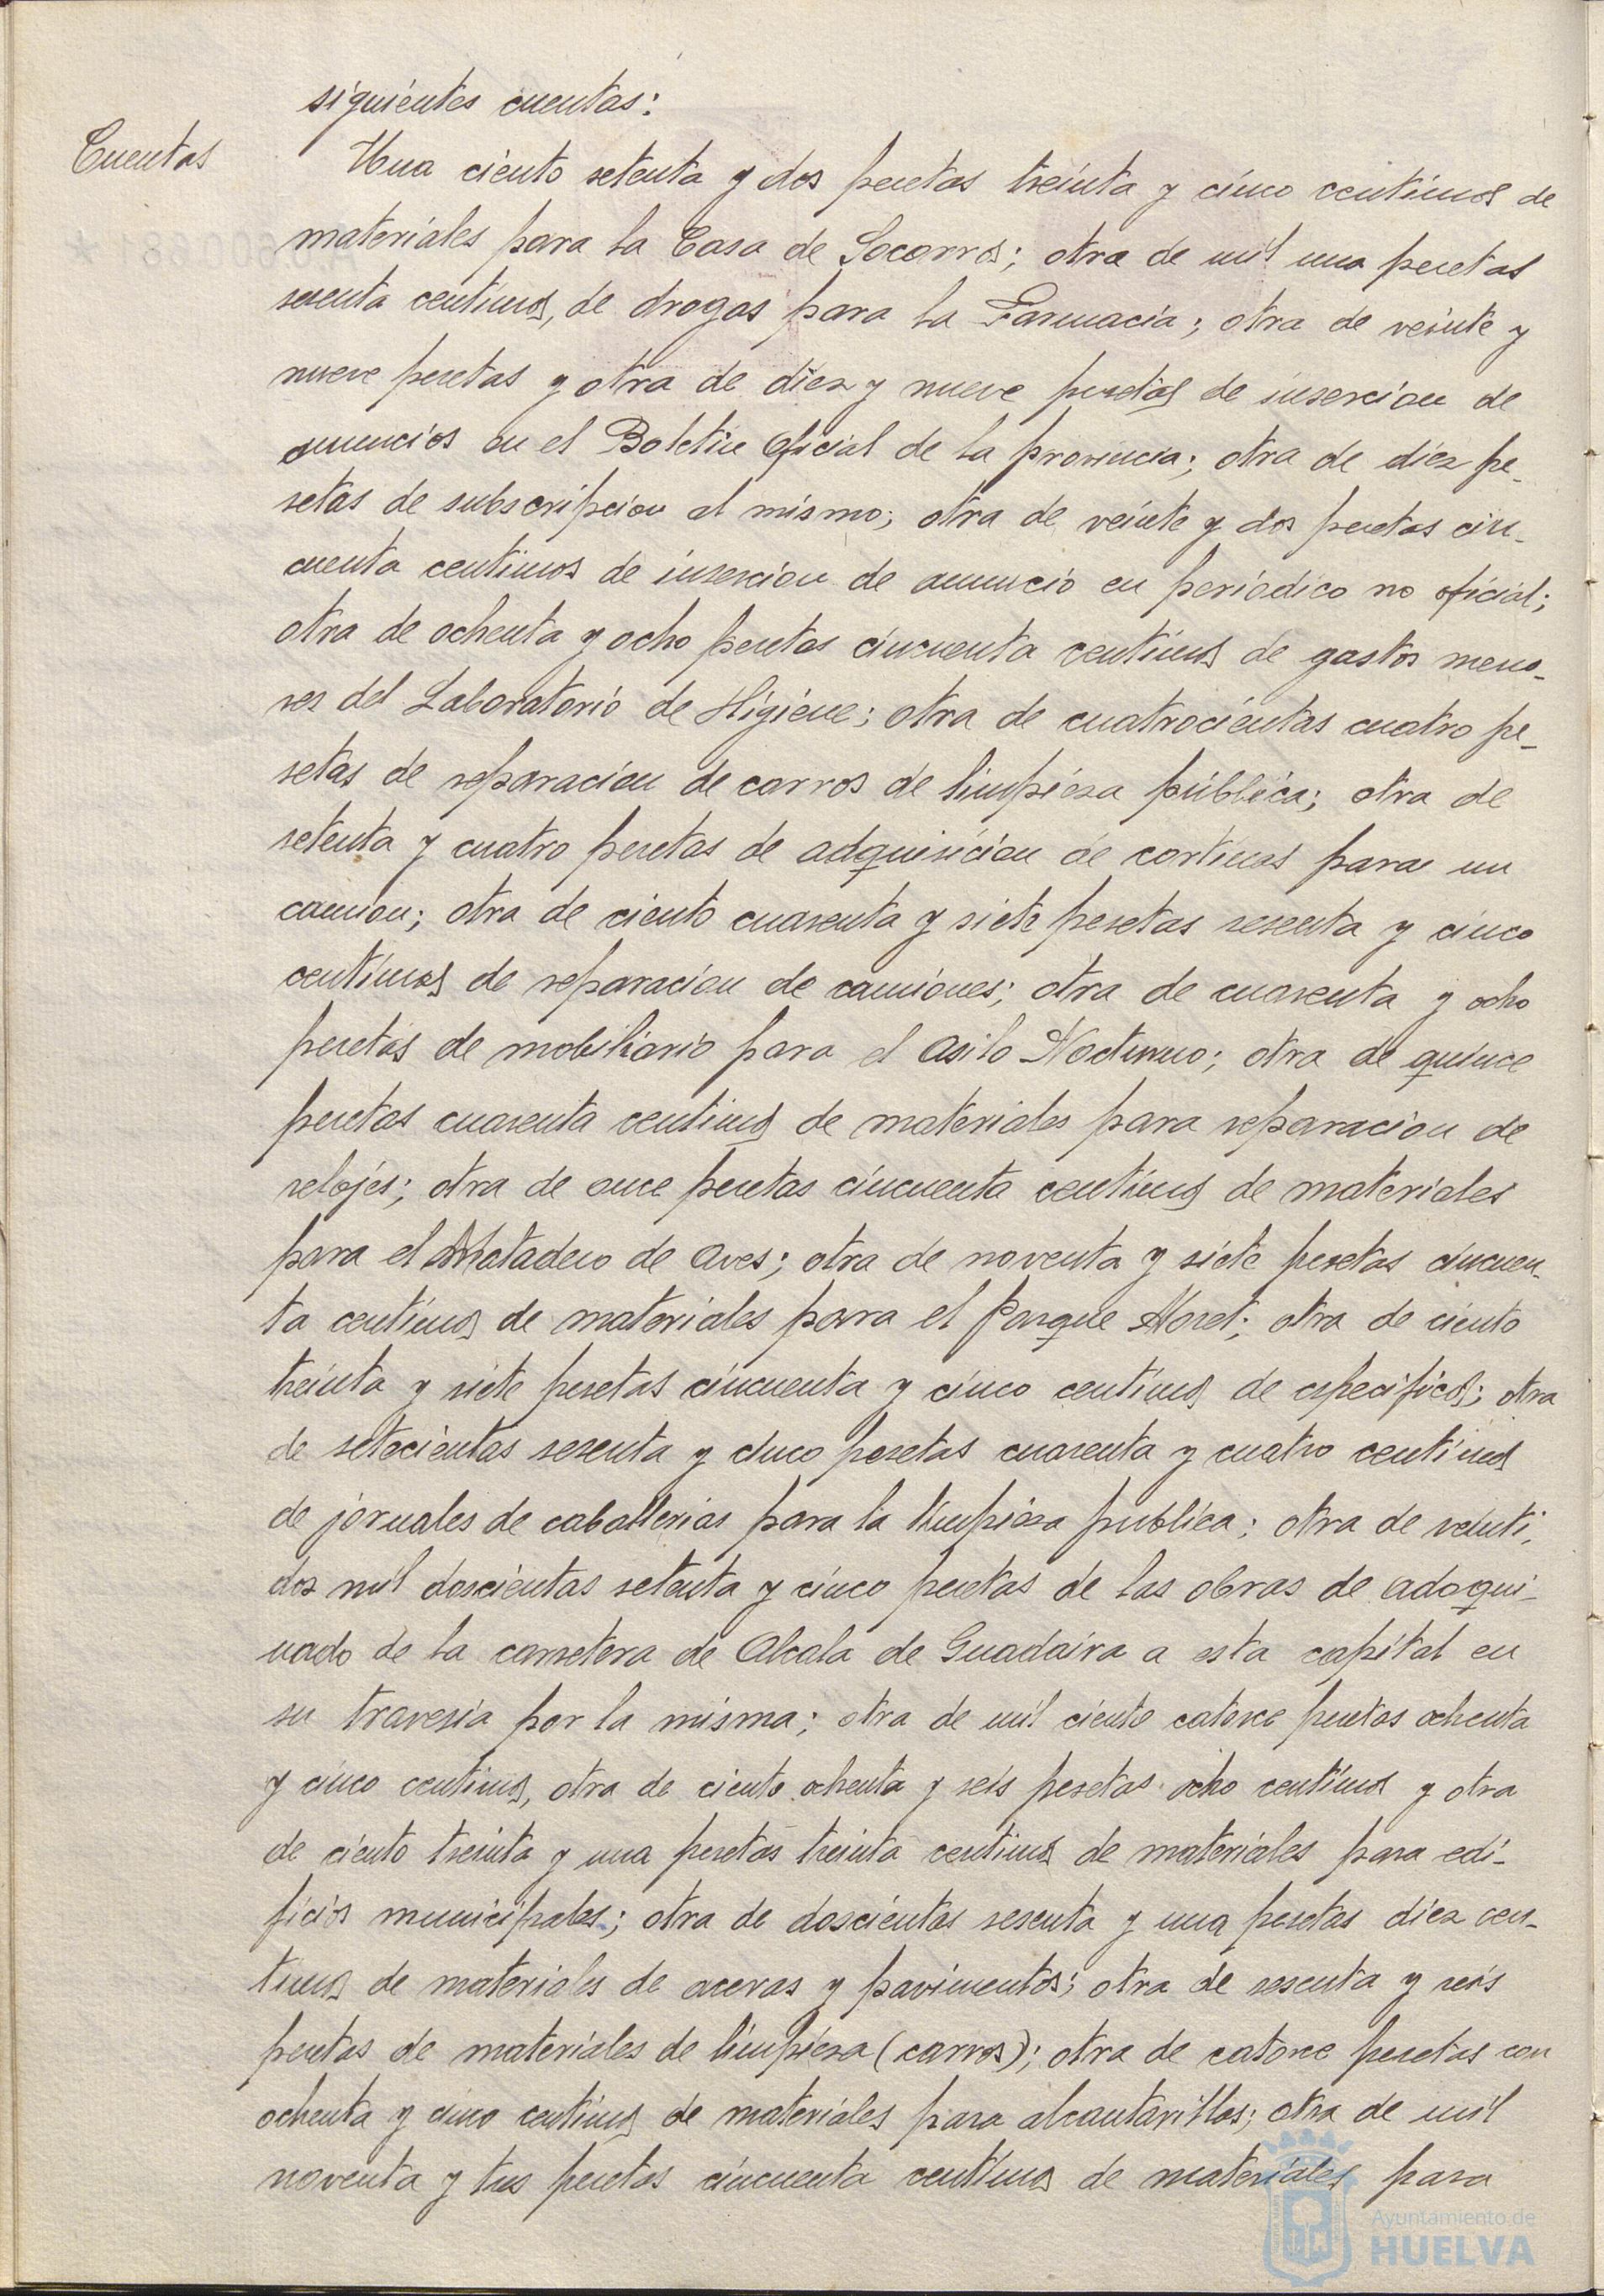 siguientes cuentas:
Cuentas
Una ciento setenta y dos pesetas treinta y cinco centimos de
materiales para la Casa de Socorros; otra de mil una pesetas
sesenta centimos, de drogas para la Farmacia; otra de veinte y
nueve pesetas y otra de diez y nueve pesetas de insercion de
anuncios en el Boletin Oficial de la provincia; otra de diez pe-
setas de subscripcion al mismo; otra de veinte y dos pesetas cin-
cuenta centimos de insercion de anuncio en periodico no oficial;
otra de ochenta y ocho pesetas cincuenta centimos de gastos meno-
res del Laboratorio de Higiene; otra de cuatrocientas cuatro pe-
setas de reparacion de carros de limpieza pública; otra de
setenta y cuatro pesetas de adquisicion de cortinas para un
camion; otra de ciento cuarenta y siete pesetas sesenta y cinco
centimos de reparacion de camiones; otra de cuarenta y ocho
pesetas de mobiliario para el Asilo Nocturno; otra de quince
pesetas cuarenta centimos de materiales para reparacion de
relojes; otra de once pesetas cincuenta centimos de materiales
para el Matadero de Aves; otra de noventa y siete pesetas cincuen-
ta centimos de materiales para el Parque Moret; otra de ciento
treinta y siete pesetas cincuenta y cinco centimos de especificos; otra
de setecientas sesenta y cinco pesetas cuarenta y cuatro centimos
de jornales de caballerias para la limpieza publica; otra de veinti-
dos mil doscientas setenta y cinco pesetas de las obras de adoqui-
nado de la carretera de Alcala de Guadaira a esta capital en
su travesia por la misma; otra de mil ciento catorce pesetas ochenta
y cinco centimos, otra de ciento ochenta y seis pesetas ocho centimos y otra
de ciento treinta y una pesetas treinta centimos de materiales para edi-
ficios municipales; otra de doscientas sesenta y una pesetas diez cen-
timos de materiales de aceras y pavimentos; otra de sesenta y seis
pesetas de materiales de limpieza (carros); otra de catorce pesetas con
ochenta y cinco centimos de materiales para alcantarillas; otra de mil
noventa y tres pesetas cincuenta centimos de materiales para
Ayuntamiento de
HUELVA